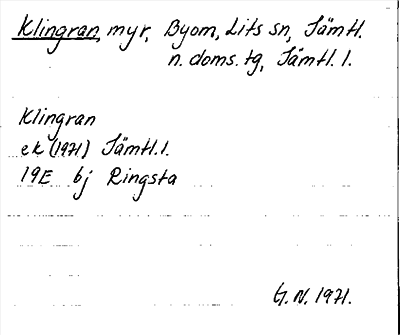 Klingran, myr, Byom, Lits sn, Jämtl.
n. doms. tg, Jämtl. l.
Klingran
ek (1971) Jämtl. l.
19E bj Ringsta
G. N. 1971.